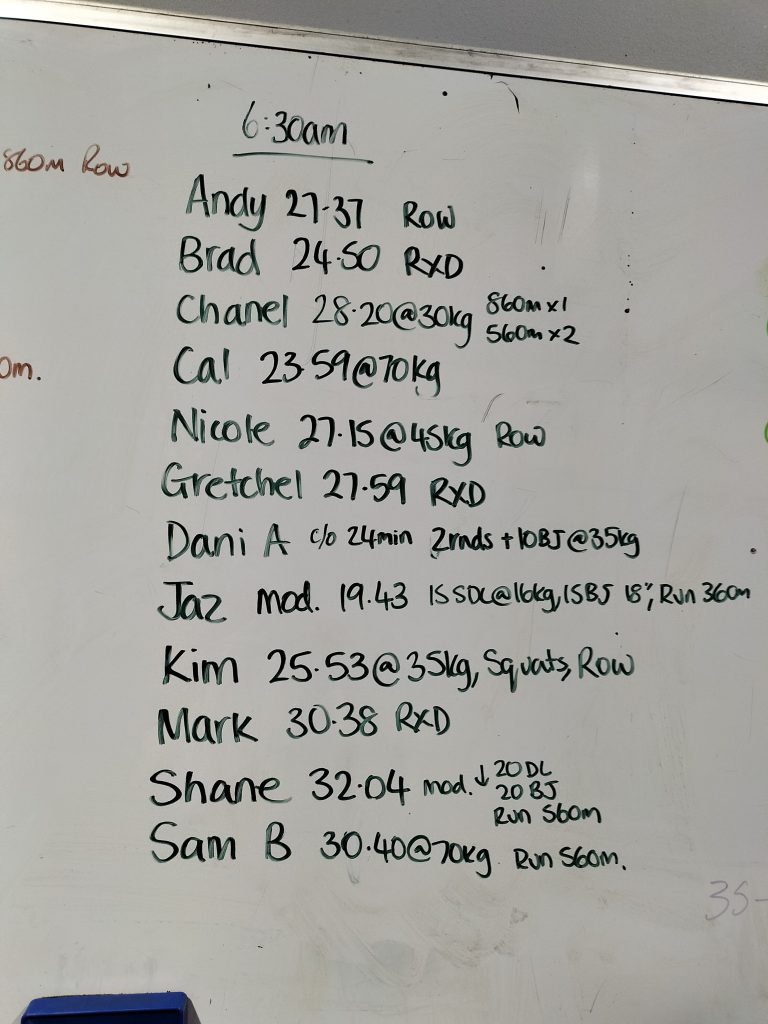 6:30am
860m Row
Andy 27.37 Row
Brad 24.50 RXD
Chanel 28.20@30kg 860m x1
560m x2
0m.
Cal 23.59@70kg
Nicole 27.15@45kg Row
Gretchel 27.59 RXD
Dani A c/o 24min 2rnds + 10BJ@35kg
Jaz mod. 19.43 15SDL@16kg, 15BJ 18", Run 360m
Kim 25.53@35kg, Squats, Row
Mark 30.38 RXD
Shane 32.04 mod. ↓ 20 DL
20 BJ
Run 560m
Sam B 30.40@70kg Run 560m.
35-